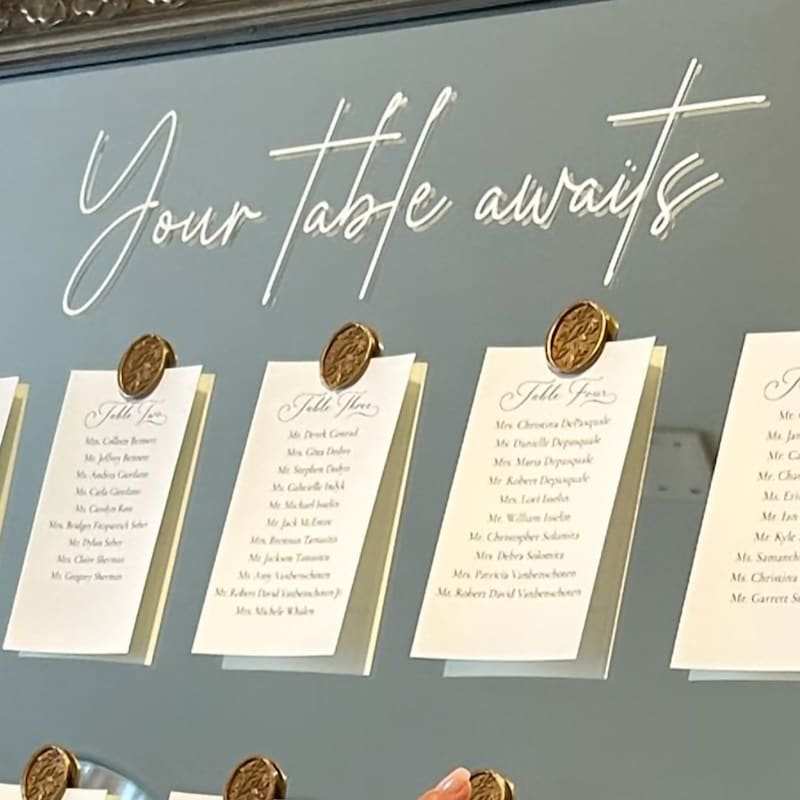 Your table awaits
Table Two
Mrs. Colleen Bennett
Mr. Jeffrey Bennett
Ms. Andrea Giordano
Ms. Carla Giordano
Ms. Carolyn
Mrs. Bridget Fitzpatrick
Mr. Dylan
Mrs. Claire Sherman
Mr. Gregory Sherman
Table Three
Mr. Derek Conrad
Mrs. Gina
Mr. Stephen
Ms. Gabrielle
Mr. Michael Isselin
Mr. Jack McEntee
Mrs. Brennan Tamasitis
Mr. Jackson Tamasitis
Ms. Amy Vanbenschoten
Mr. Robert David Vanbenschoten Jr.
Mrs. Michele Whalen
Table Four
Mrs. Christina DePasquale
Ms. Danielle Depasquale
Mrs. Maria Depasquale
Mr. Robert Depasquale
Mrs. Lori Isselin
Mr. William Isselin
Mr. Christopher Solomita
Mrs. Debra Solomita
Mrs. Patricia Vanbenschoten
Mr. Robert David Vanbenschoten
Mr.
Ms.
Mr.
Mr.
Ms.
Mr. Ian
Mr. Kyle
Ms.
Ms. Christina
Mr. Garrett